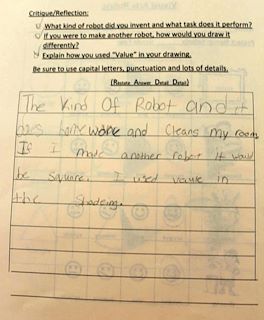 Critique/Reflection:
What kind of robot did you invent and what task does it perform?
If you were to make another robot, how would you draw it
differently?
Explain how you used "Value" in your drawing.
Be sure to use capital letters, punctuation and lots of details.
(Restate Answer Detail Detail)
The Kind Of Robot and it
does home worke and Cleans my room
If I made another robot it would
be Square. I used value in
the Shadeing.